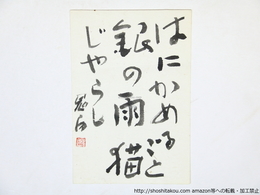 はにかめること
銀の雨猫
じゃらし
http://shoshitakou.com amazon等への転載・加工禁止